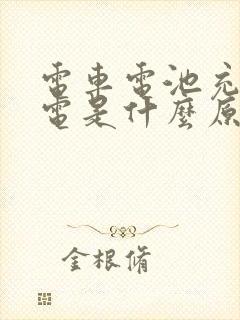 電車電池充
電是什麼原
金根脩